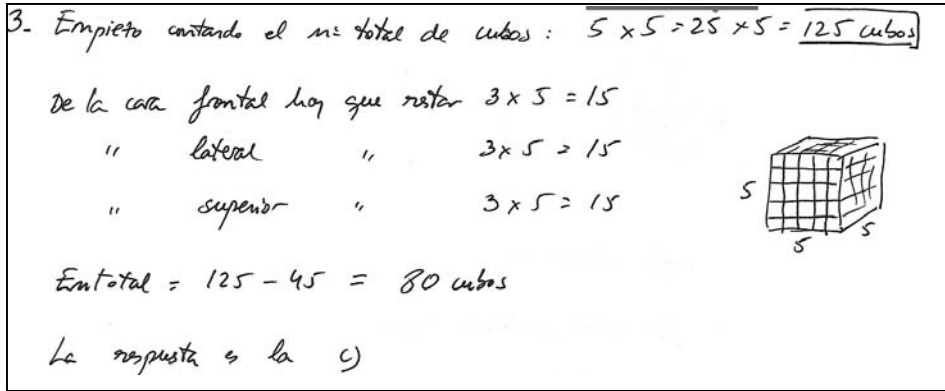 3- Empiezo contando el nº total de cubos: 5 x 5 = 25 x 5 = 125 cubos
De la cara frontal hay que restar 3 x 5 = 15
" lateral " 3 x 5 = 15
" superior " 3 x 5 = 15
5
5
5
En total = 125 - 45 = 80 cubos
La respuesta es la c)